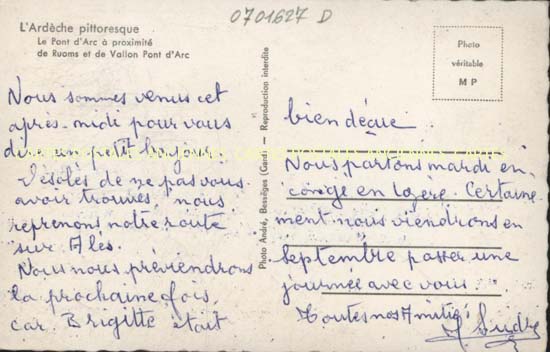 0701627 D
L'Ardèche pittoresque
Le Pont d'Arc à proximité
de Ruoms et de Vallon Pont d'Arc
Nous sommes venus cet
après-midi pour vous
dire un petit bonjour.
Désolés de ne pas vous
avoir trouvés, nous
reprenons notre route
sur Ales.
Nous nous préviendrons
la prochaine fois,
car Brigitte était
Photo André, Bessèges (Gard) — Reproduction interdite
Photo
véritable
M P
bien déçue.
Nous partons mardi en
congé en Lozère. Certaine-
ment nous viendrons en
septembre passer une
journée avec vous.
Toutes nos Amitiés